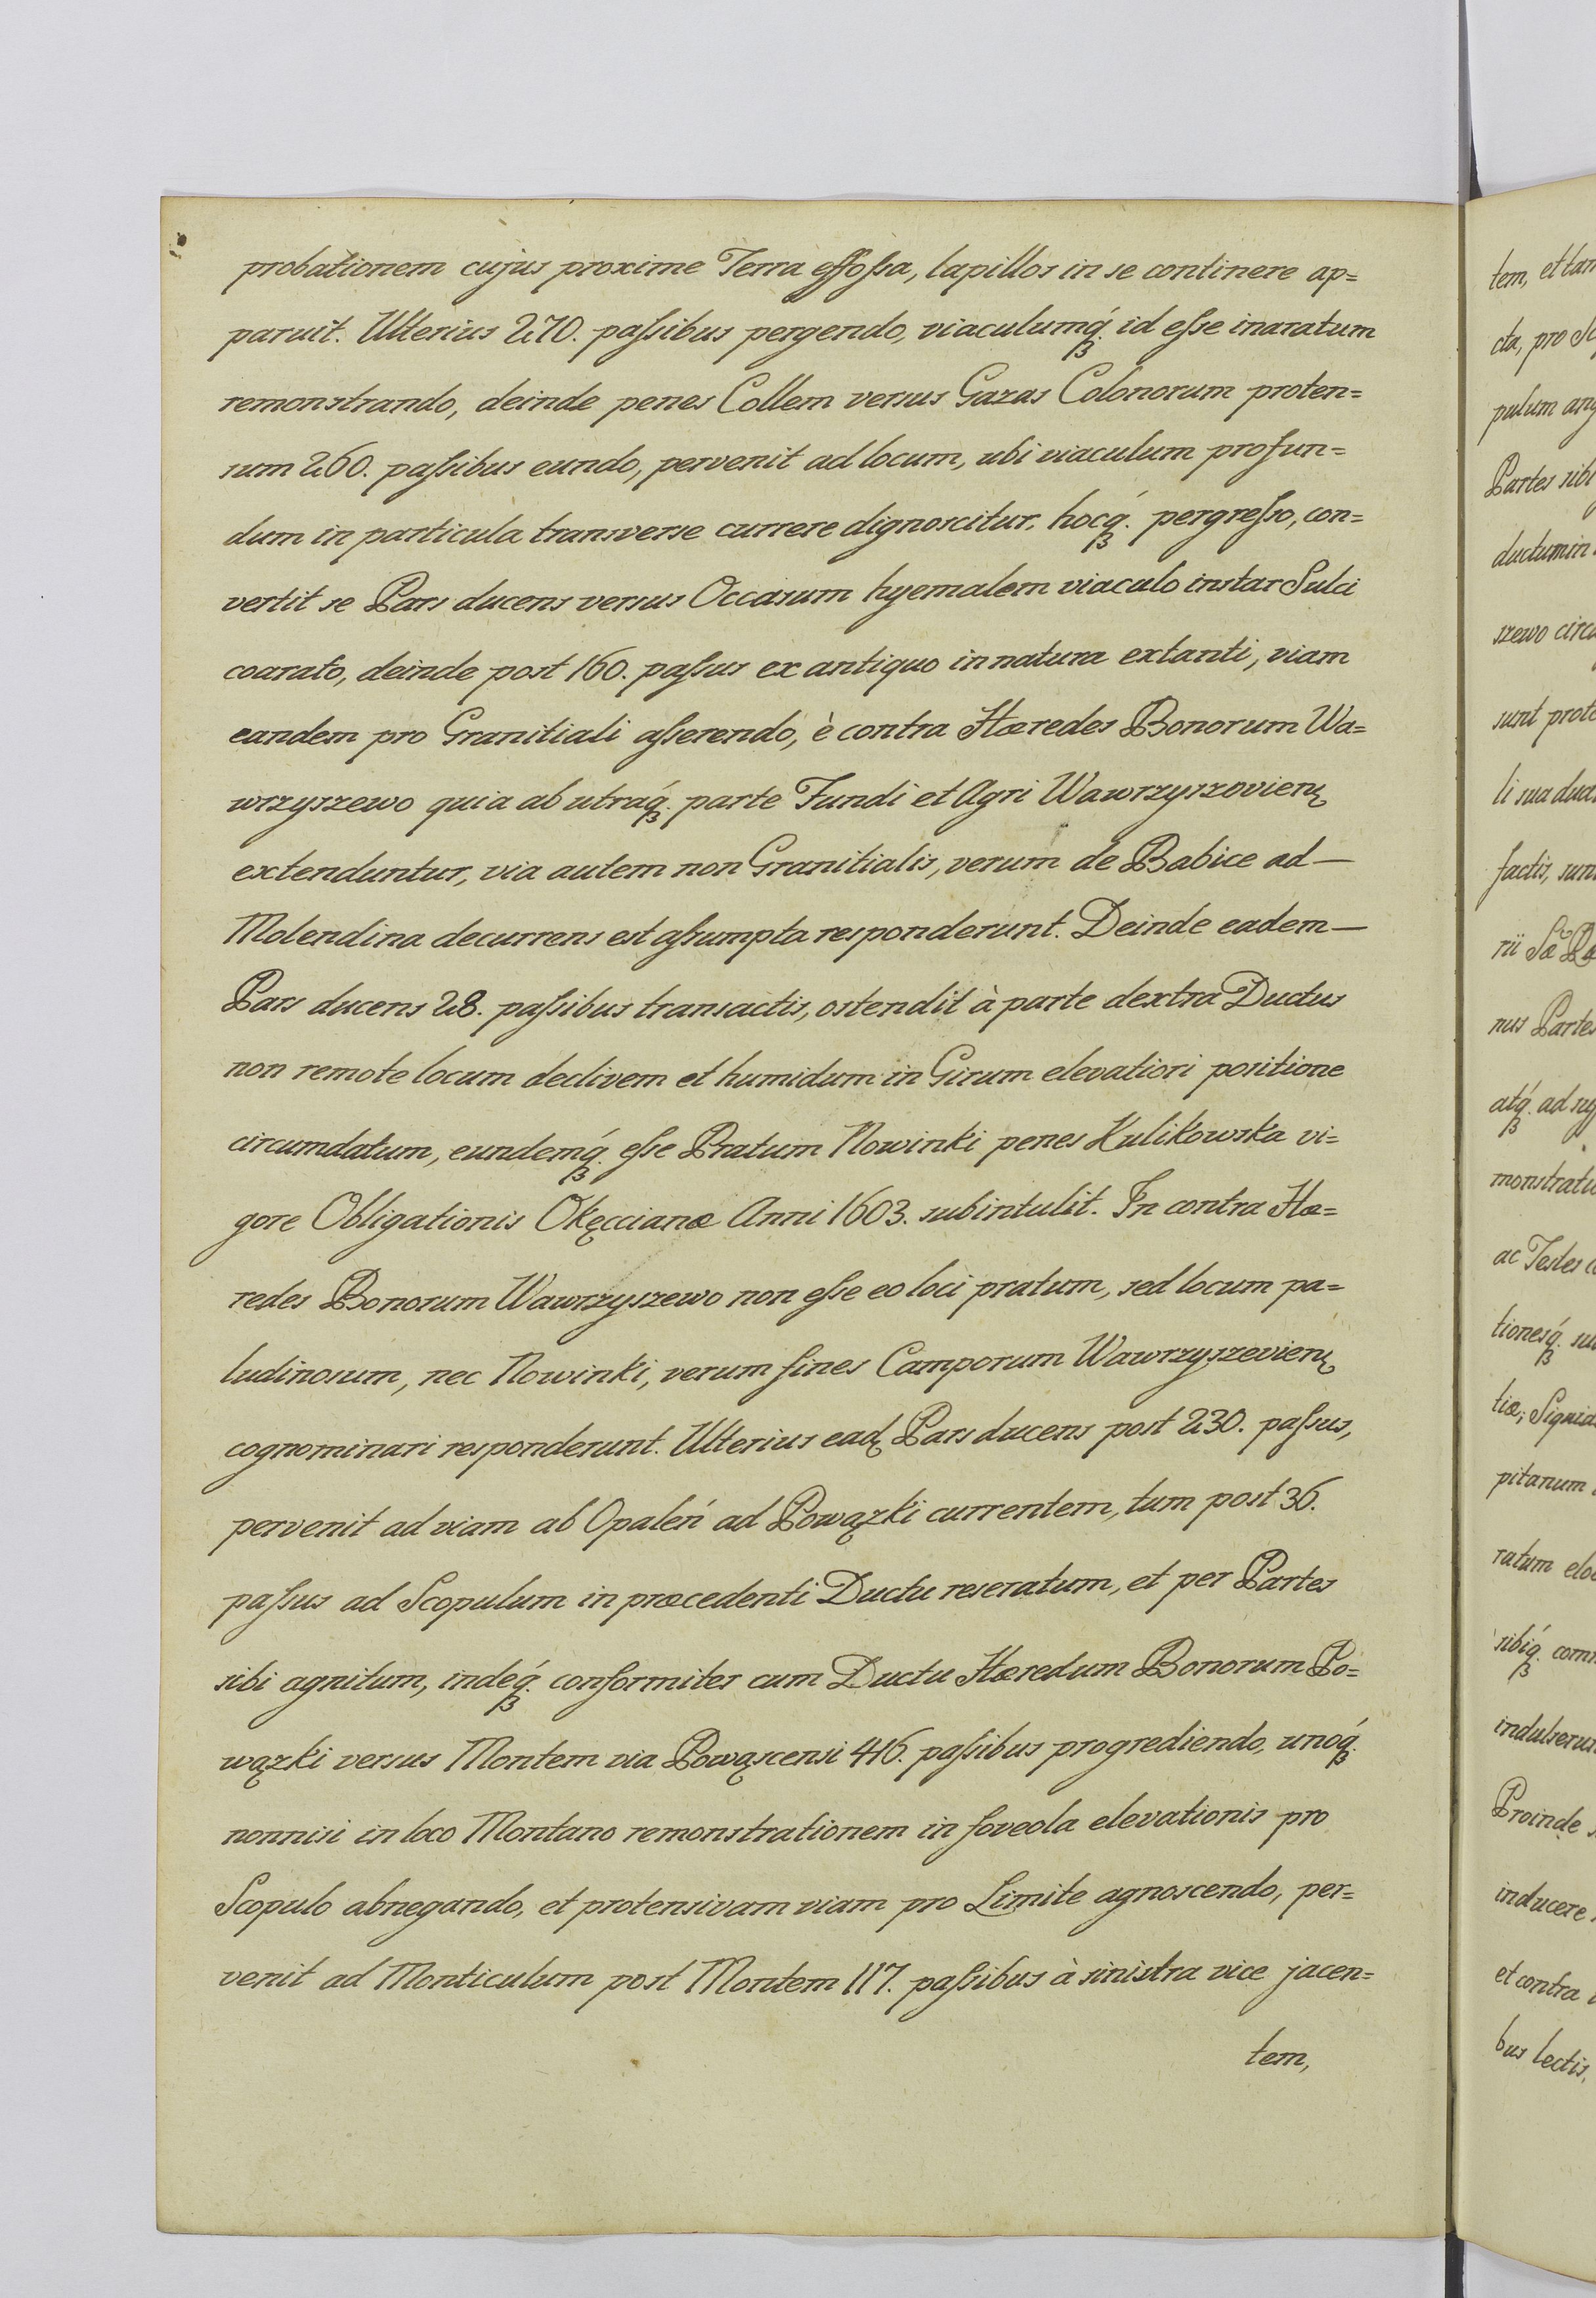 probationem cujus proxime Terra effoſsa, lapillos in se continere ap=
paruit. Ulterius 270. paſsibus pergendo, viaculumq́ꝫ. id eſse inaratum
remonstrando, deinde penes Collem versus Gazas Colonorum proten=
sum 260. paſsibus eundo, pervenit ad locum, ubi viaculum profun=
dum in particula transverse currere dignoscitur. hocq́ꝫ. pergreſso, con=
vertit se Pars ducens versus Occasum hyemalem viaculo instar Sulci
coarato, deinde post 160. paſsus ex antiquo in natura extanti, viam
eandem pro Granitiali aſserendo, è contra Hæredes Bonorum Wa=
wrzyszewo quia ab utraq́ꝫ. parte Fundi et Agri Wawrzyszovienȩ
extenduntur, via autem non Granitialis, verum de Babice ad—
Molendina decurrens est aſsumpta responderunt. Deinde eadem—
Pars ducens 28. paſsibus transactis, ostendit à parte dextra Ductus
non remote locum declivem et humidum in Girum elevatiori positione
circumdatum, eundemq́ꝫ. eſse Pratum Nowinki penes Kulikowska vi=
gore Obligationis Okęccianæ Anni 1603. subintulit. In contra Hæ=
redes Bonorum Wawrzyszewo non eſse eo loci pratum, sed locum pa=
ludinosum, nec Nowinki, verum fines Camporum Wawrzyszevienȩ
cognominari responderunt. Ulterius eadȩ Pars ducens post 230. paſsus,
pervenit ad viam ab Opaleń ad Powązki currentem, tum post 36.
paſsus ad Scopulum in præcedenti Ductu reseratum, et per Partes
sibi agnitum, indeq́ꝫ. conformiter cum Ductu Hæredum Bonorum Po=
wązki versus Montem via Powąscensi 416. paſsibus progrediendo, unoq́ꝫ.
nonnisi in loco Montano remonstrationem in foveola elevationis pro
Scopulo abnegando, et protensivam viam pro Limite agnoscendo, per=
venit ad Monticulum post Montem 117. paſsibus à sinistra viæ jacen=
tem,
tem, et tam
cta, pro Sc
pulum ang
Partes sibi
ductum in
szewo circa
sunt prote
li sua duc
factis, sun
rii Sæ Ræ
nus Partes
atq́ꝫ. ad
monstratu
ac Testes
tionesq́ꝫ. su
tiæ; Signa
pitanum
ratum elo
sibiq́ꝫ. com
indulserun
Proinde
inducere
et contra
bus lectis,